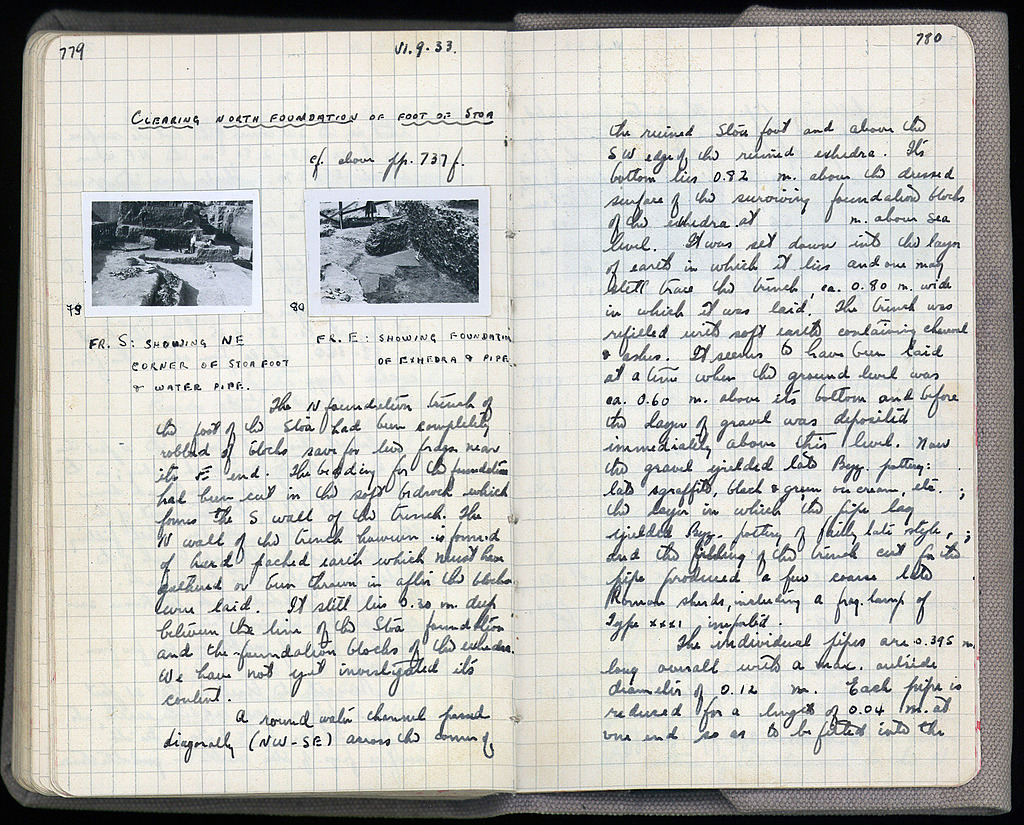 779
VI.9.33.
CLEARING NORTH FOUNDATION OF FOOT OF STOA
cf. above pp. 737 f.
79
80
FR. S: SHOWING NE
CORNER OF STOA FOOT
& WATER PIPE.
FR. E: SHOWING FOUNDATION
OF EXHEDRA & PIPE
The N foundation trench of
the foot of the Stoa had been completely
robbed of blocks save for two frags. near
its E end. The bedding for the foundation
had been cut in the soft bedrock which
forms the S wall of the trench. The
N wall of the trench however is formed
of hard packed earth which must have
gathered or been thrown in after the blocks
were laid. It still lies 0.30 m. deep
between the line of the Stoa foundation
and the foundation blocks of the exhedra.
We have not yet investigated its
content.
A round water channel passed
diagonally (NW-SE) across the corner of
780
the ruined Stoa foot and above the
SW edge of the ruined exhedra. Its
bottom lies 0.82 m. above the dressed
surface of the surviving foundation blocks
of the exhedra at m. above sea
level. It was set down into the layer
of earth in which it lies and one may
still trace the trench, ca. 0.80 m. wide
in which it was laid. The trench was
refilled with soft earth containing charcoal
& ashes. It seems to have been laid
at a time when the ground level was
ca. 0.60 m. above its bottom and before
the layer of gravel was deposited
immediately above this level. Now
the gravel yielded late Byz. pottery:
late sgraffito, black & green on cream, etc. ;
the layer in which the pipe lay
yielded Byz. pottery of fairly late style, ;
and the filling of the trench cut for the
pipe produced a few coarse late
Roman sherds, including a frag. lamp of
Type XXXI imported.
The individual pipes are 0.395 m.
long overall with a max. outside
diameter of 0.12 m. Each pipe is
reduced for a length of 0.04 m. at
one end so as to be fitted into the